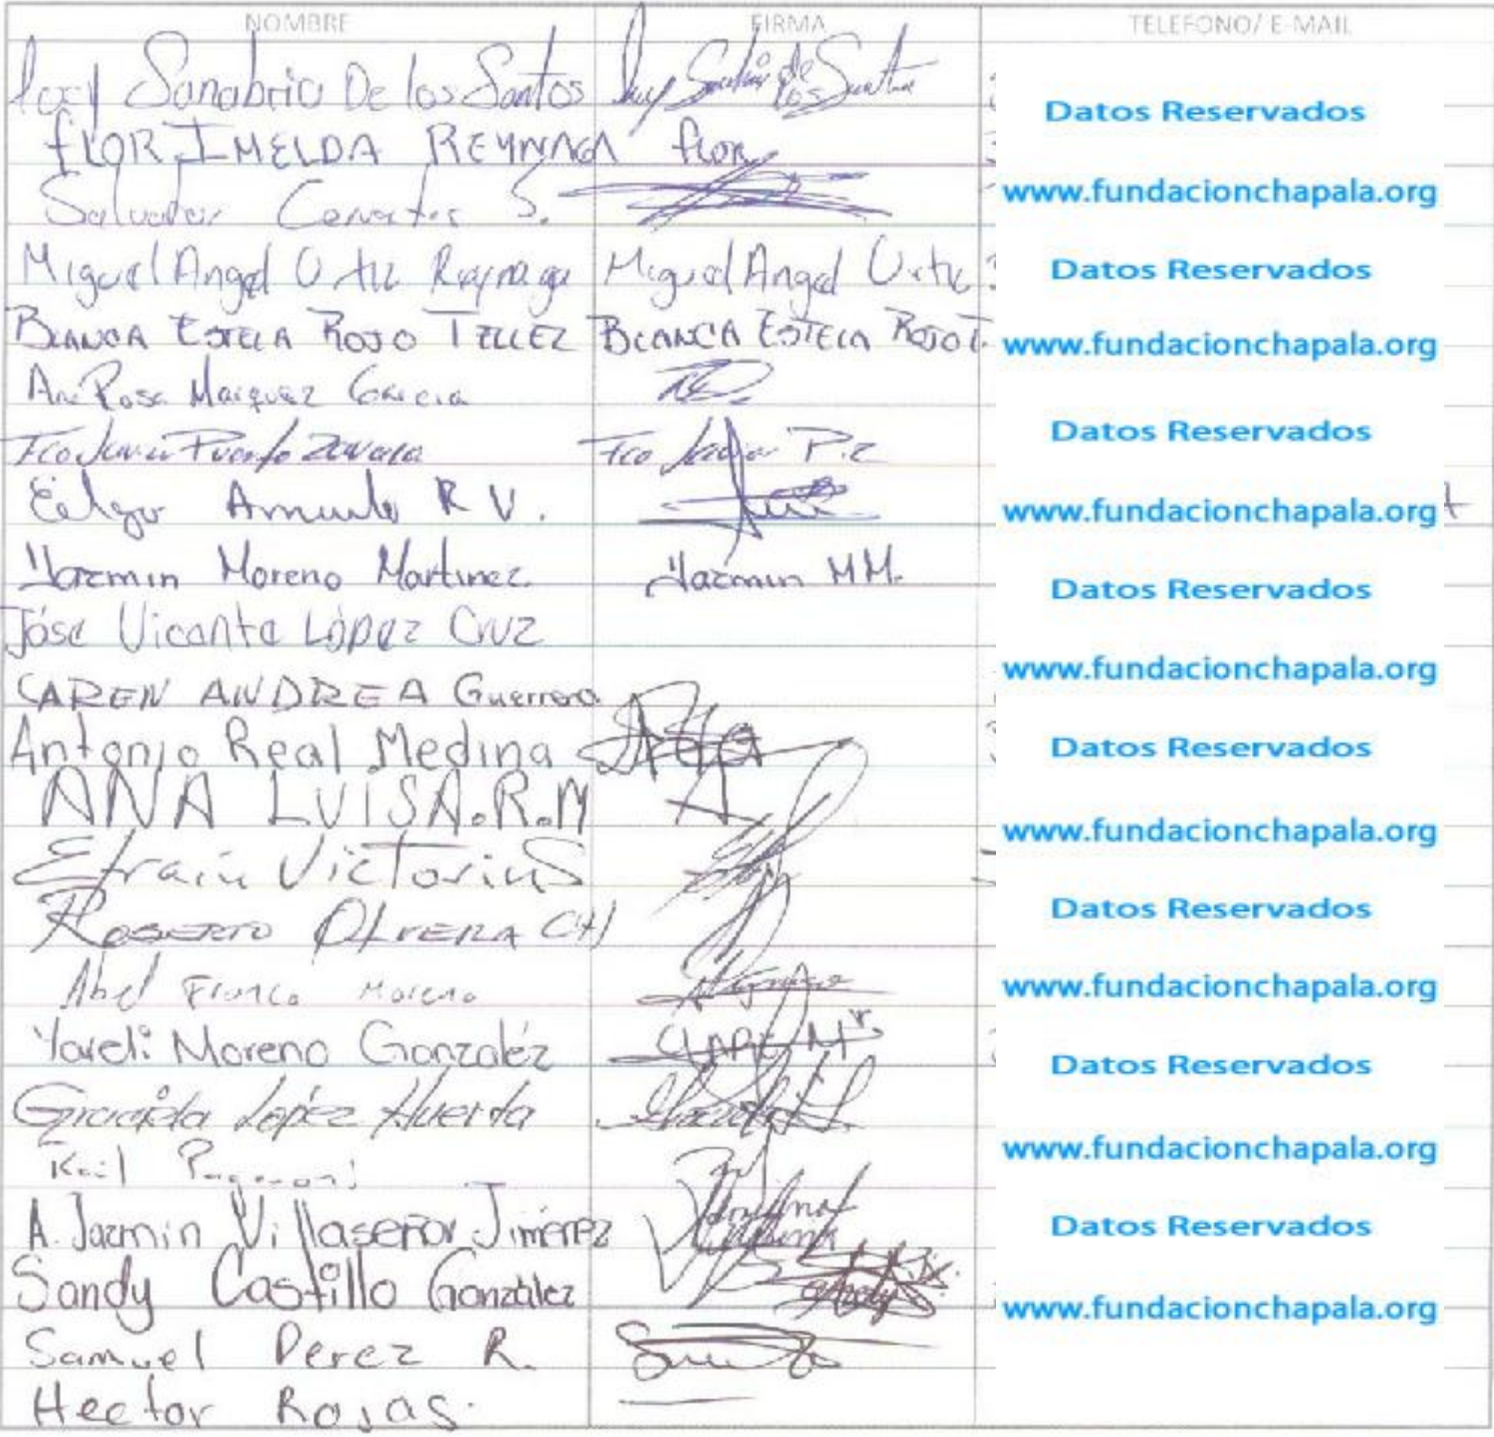 NOMBRE FIRMA TELEFONO/ E-MAIL
Sanabria De los Santos
Datos Reservados
FLOR IMELDA REYNAGA flor
www.fundacionchapala.org
Salvador S.
Miguel Angel Ortiz Reynaga Miguel Angel Ortiz
Datos Reservados
BLANCA ESTELA ROJO TELLEZ BLANCA ESTELA ROJO T.
www.fundacionchapala.org
Ana Rosa Marquez Garcia
Datos Reservados
Fco Javier Zavala Fco Javier P.Z
R V.
www.fundacionchapala.org
Yazmin Moreno Martinez. Yazmin MM.
Datos Reservados
Jóse Vicente López Cruz
www.fundacionchapala.org
CAREN ANDREA Guerrero
Antonio Real Medina
Datos Reservados
ANA LUISA.R.M
www.fundacionchapala.org
Efrain Victorin
ROBERTO OLVERA CH
Datos Reservados
Abel Franco Moreno
www.fundacionchapala.org
Yareli Moreno González
Datos Reservados
Graciela López Huerta
www.fundacionchapala.org
A. Jazmin Villaseñor Jimenez
Datos Reservados
Sandy Castillo González
www.fundacionchapala.org
Samuel Perez R.
Hector Rojas.